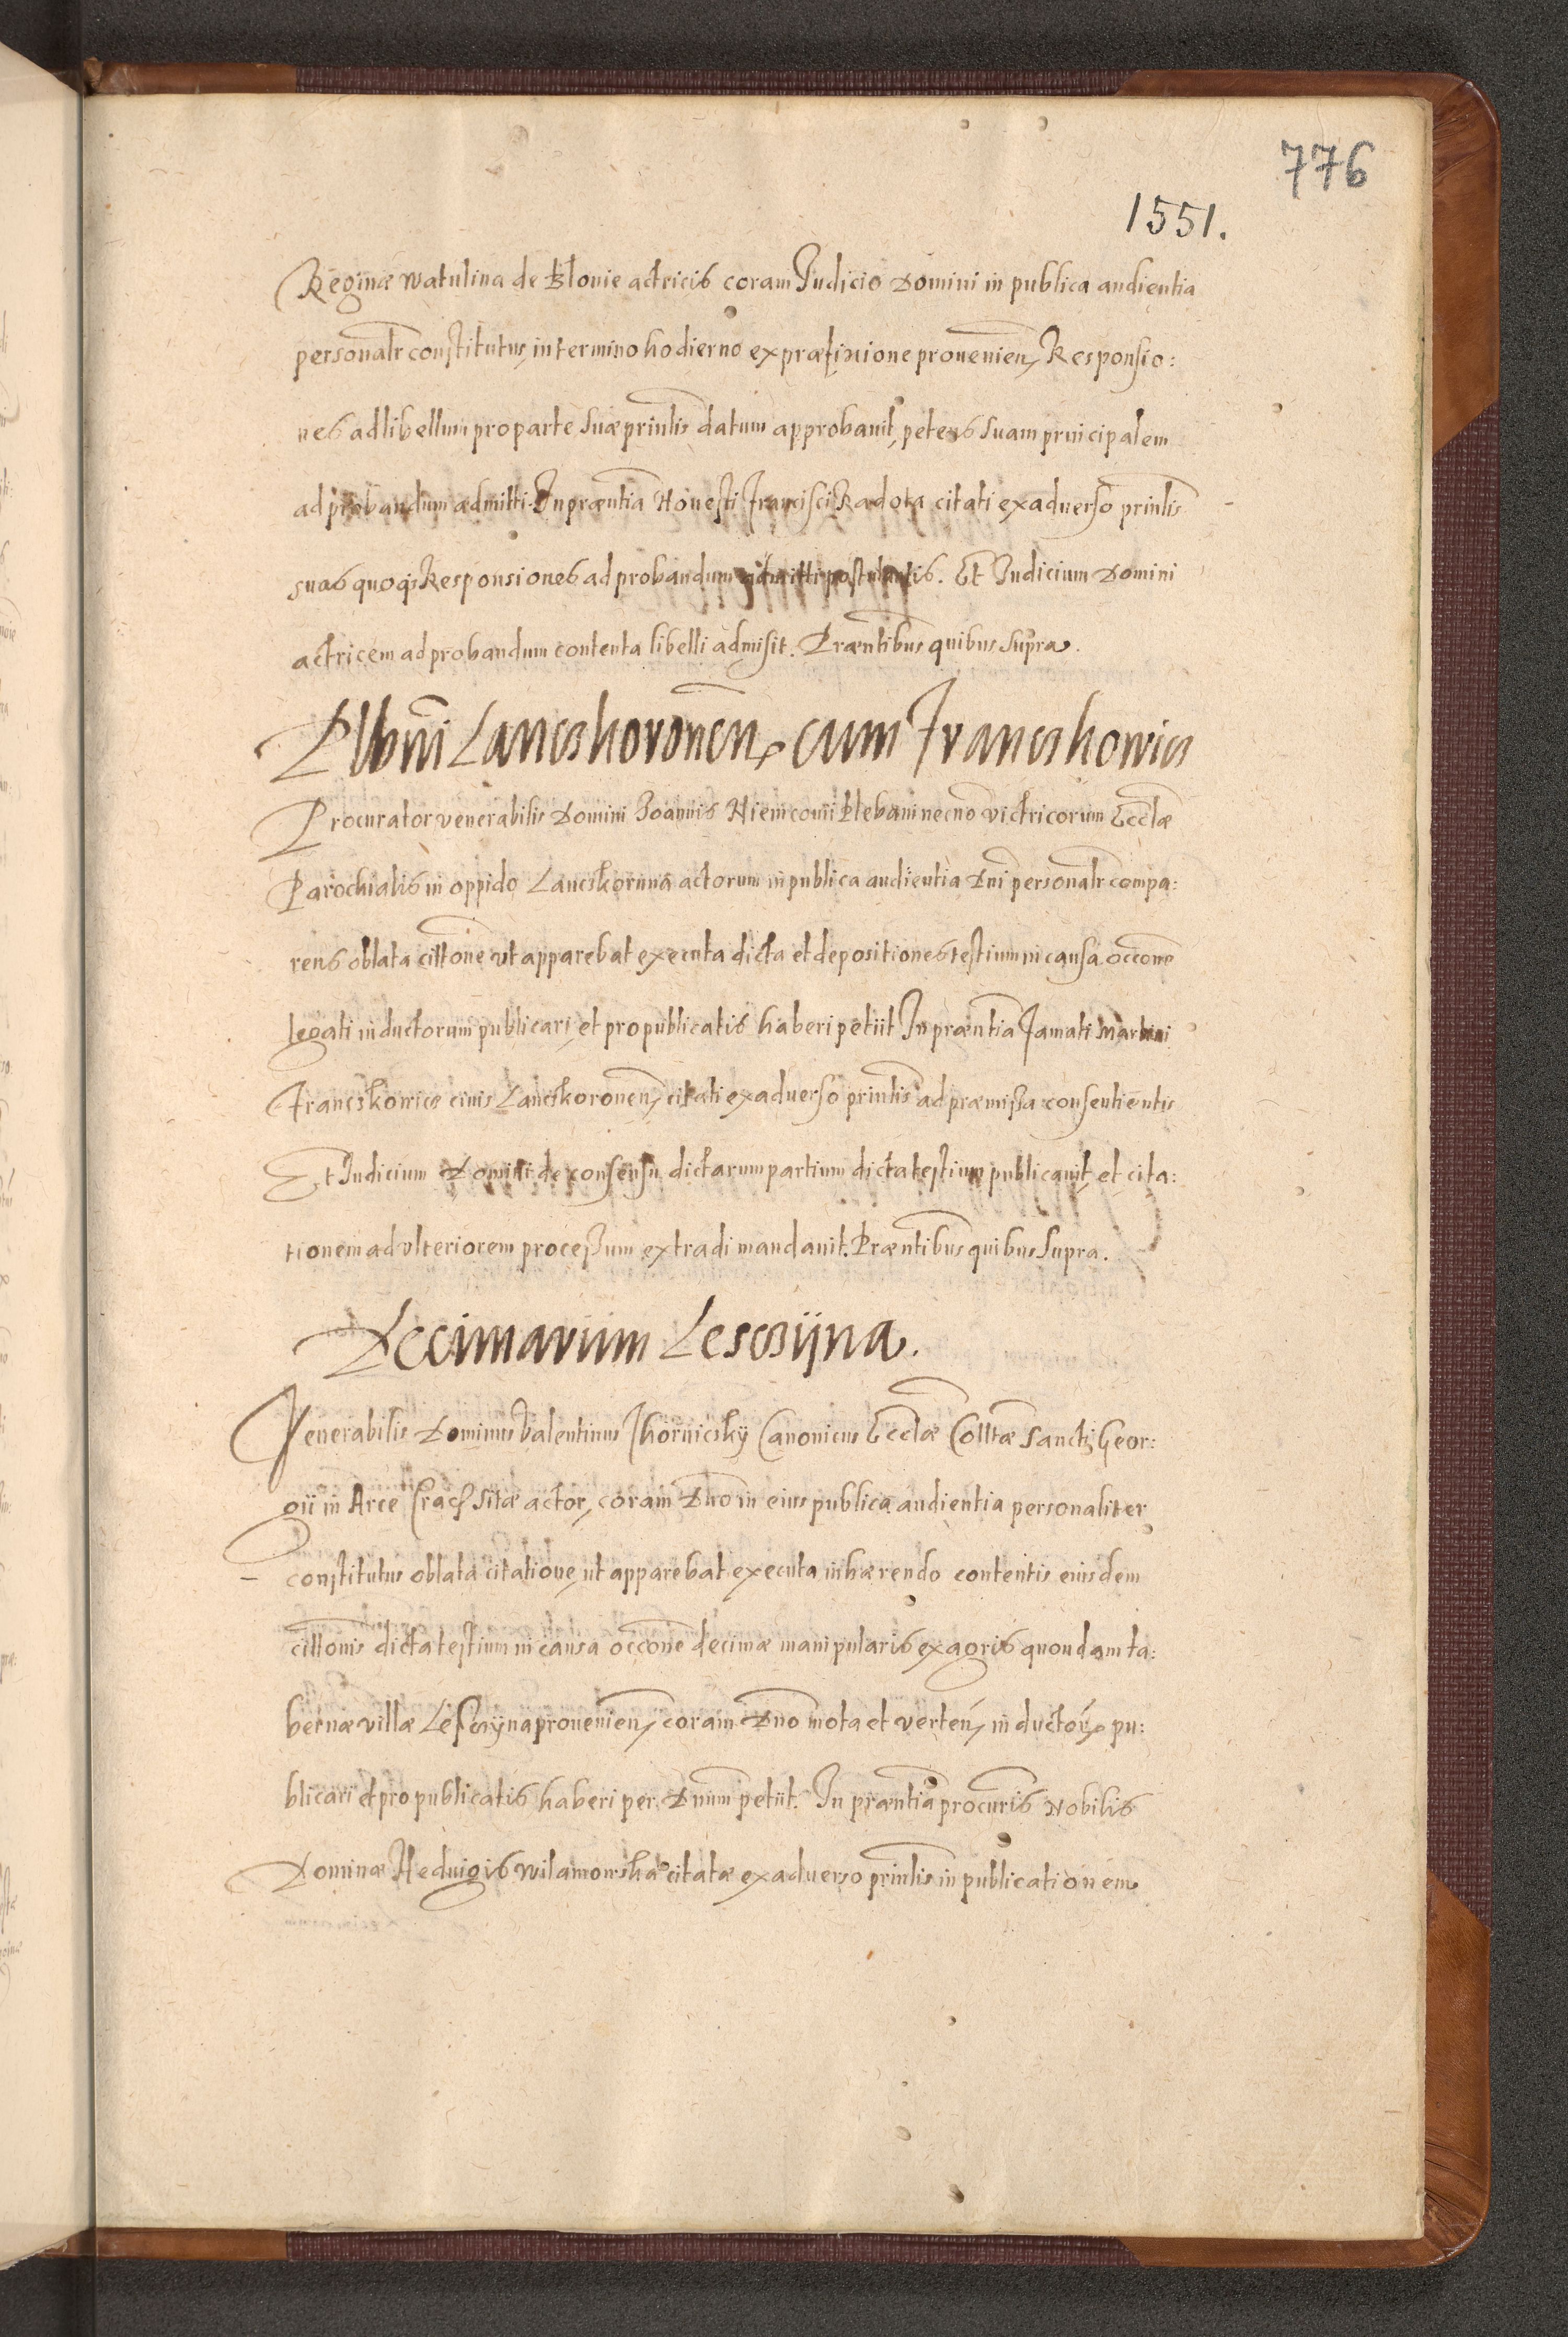 776
1551.
Reginæ Watulina de Blonie actricis coram Judicio Domini in publica audientia
personalr constitutus, in termino hodierno ex præfixione provenien, Responsio:
nes ad libellum pro parte suæ prinlis datum approbavit, petens suam principalem
ad probandum admitti. In præntia Honesti Francisci Kadota citati ex adverso prinlis
suas quoq; Responsiones ad probandum admitti postulantis. Et Judicium Domini
actricem ad probandum contenta libelli admisit. Præntibus quibus supra.
Plbni Lanczkoronen, cum Franczkowicz
Procurator venerabilis Domini Joannis Niemconii Plebani necno victricorum Ecclæ
Parochialis in oppido Lanczkoruna actorum in publica audientia Dni personalr compa:
rens oblata cittone ut apparebat executa dicta et depositiones testium in causa occone
legati inductorum publicari, et pro publicatis haberi petiit In præntia Famati Martini
Franczkowicz civis Lanczkoronen, citati ex adverso prinlis ad præmissa consentientis
Et Judicium Domini de consensu dictarum partium dicta testium publicavit, et cita:
tionem ad ulteriorem processum extradi mandavit. Præntibus quibus supra.
Decimarum Lesczyna.
Venerabilis Dominus Valentinus Thorniczky Canonicus Ecclæ Colltæ Sancti Geor:
gii in Arce Crac sitæ actor, coram Dno in eius publica audientia personaliter
constitutus oblata citatione, ut apparebat executa inhærendo contentis eiusdem
cittonis dicta testium in causa occone decimæ manipularis ex agris quondam ta:
bernæ villæ Lesczyna provenien, coram Dno mota et verten, inductor, pu:
blicari et pro publicatis haberi per Dnum petiit. In præntia procuris Nobilis
Dominæ Hedvigis Wilamowska citatæ ex adverso prinlis in publicationem